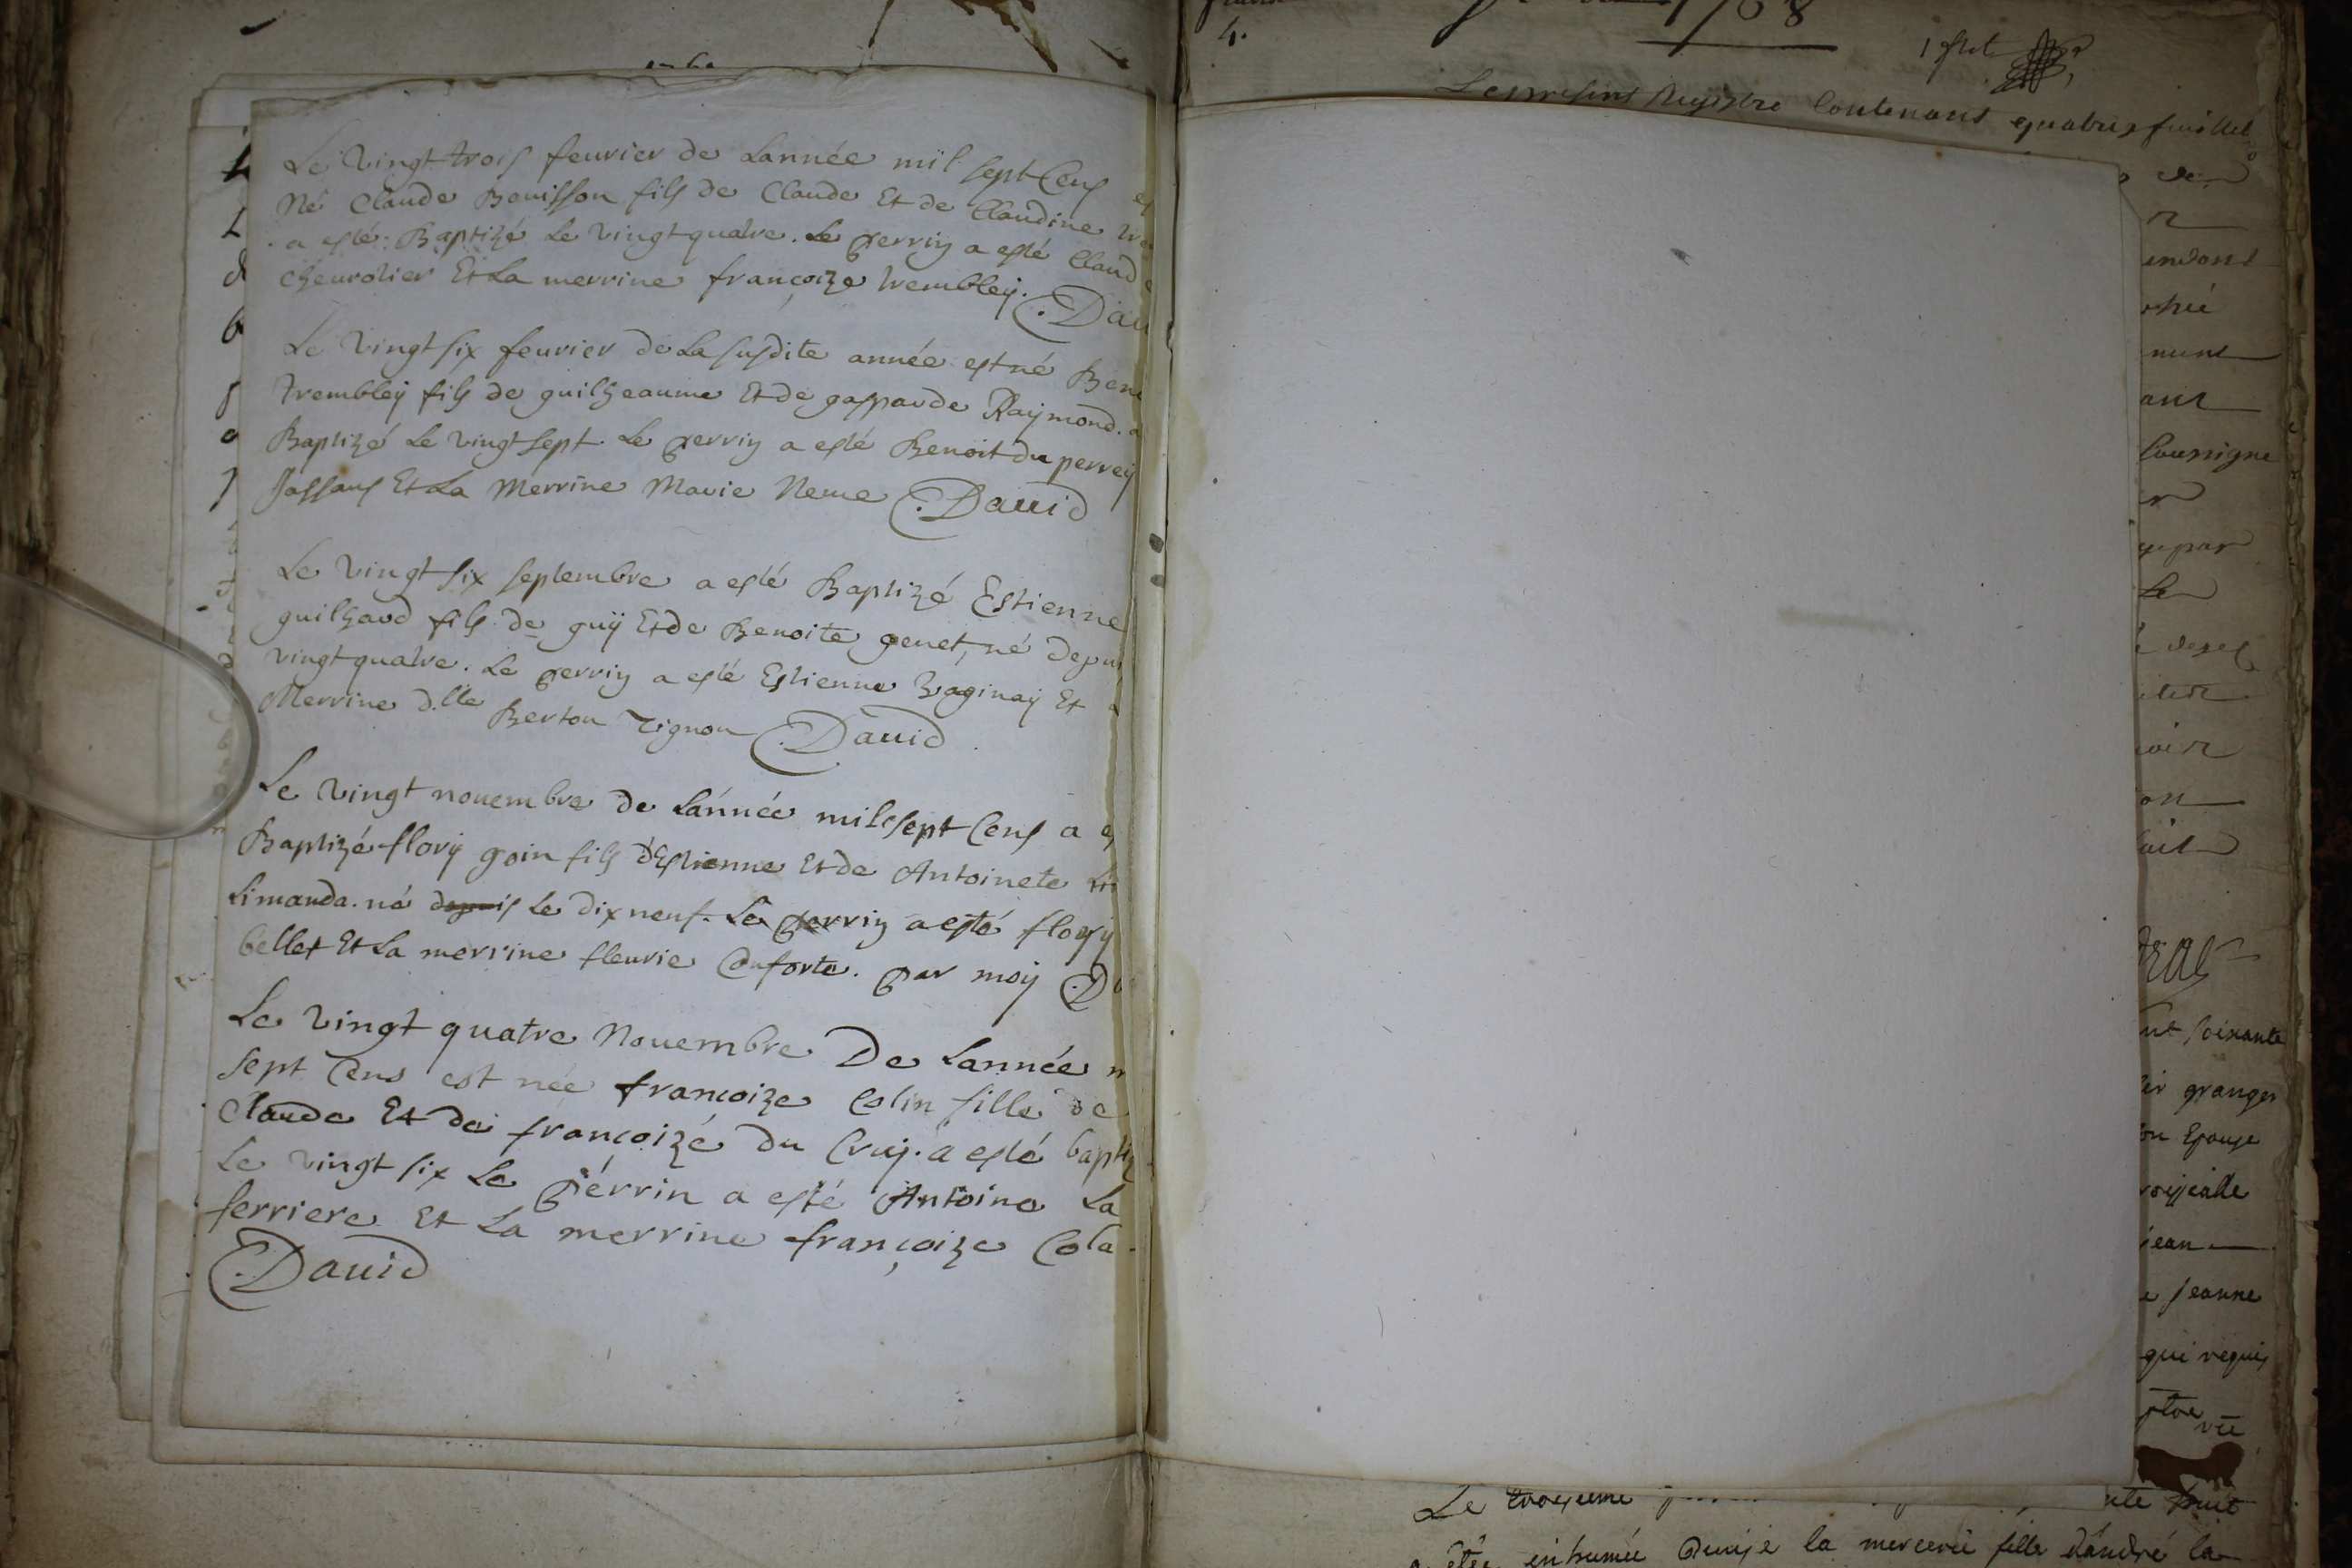 Le vingt trois feurier de Lannée mil sept Cens es
Né Claude Bouisson fils de Claude Et de Claudine tre
a esté Baptizé Le vingtquatre. Le perrin a esté Claud
cheurotier Et La merrine françoize trembley. Dau
Le vingt six feurier de La susdite année est né Ben
trembley fils de guilheaume Et de gasparde Raymond. a
Baptizé Le vingt sept. Le perrin a esté Benoit du perrey
Jassans Et La Merrine Marie Neme Dauid
Le vingt six septembre a esté Baptizé Estienne
guilhard fils de guÿ Et de Benoite genet, né depui
vingtquatre. Le perrin a esté Estienne Vaginaÿ Et
Merrine d.lle Berton tignon Dauid
Le vingt nouembre de Lannée mil sept Cens a es
Baptizé florÿ goin fils d'Estienne Et de Antoinete
Limanda. né depuis Le dix neuf. Le perrin a esté florÿ
bellet Et La merrine fleurie Conforte. par moÿ D
Le vingt quatre Nouembre De Lannée m
sept Cens est née francoize Colin fille de
Claude Et de françoize du Cruy. a esté baptiz
Le vingt six Le perrin a esté Antoine La
ferriere Et La merrine françoize Cola
Dauid
4.
1768
Le present Registre Contenant quatre feuillets
soixante
granger
Epouse
jean
jeanne
qui requis
Le troisieme
huit
inhumée la mercerie fille d'andré la